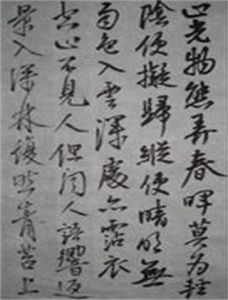 山光物態弄春暉莫為輕
陰便擬歸縱使晴明無
雨色入雲深處亦霑衣
空山不見人但聞人語響返
景入深林復照青苔上